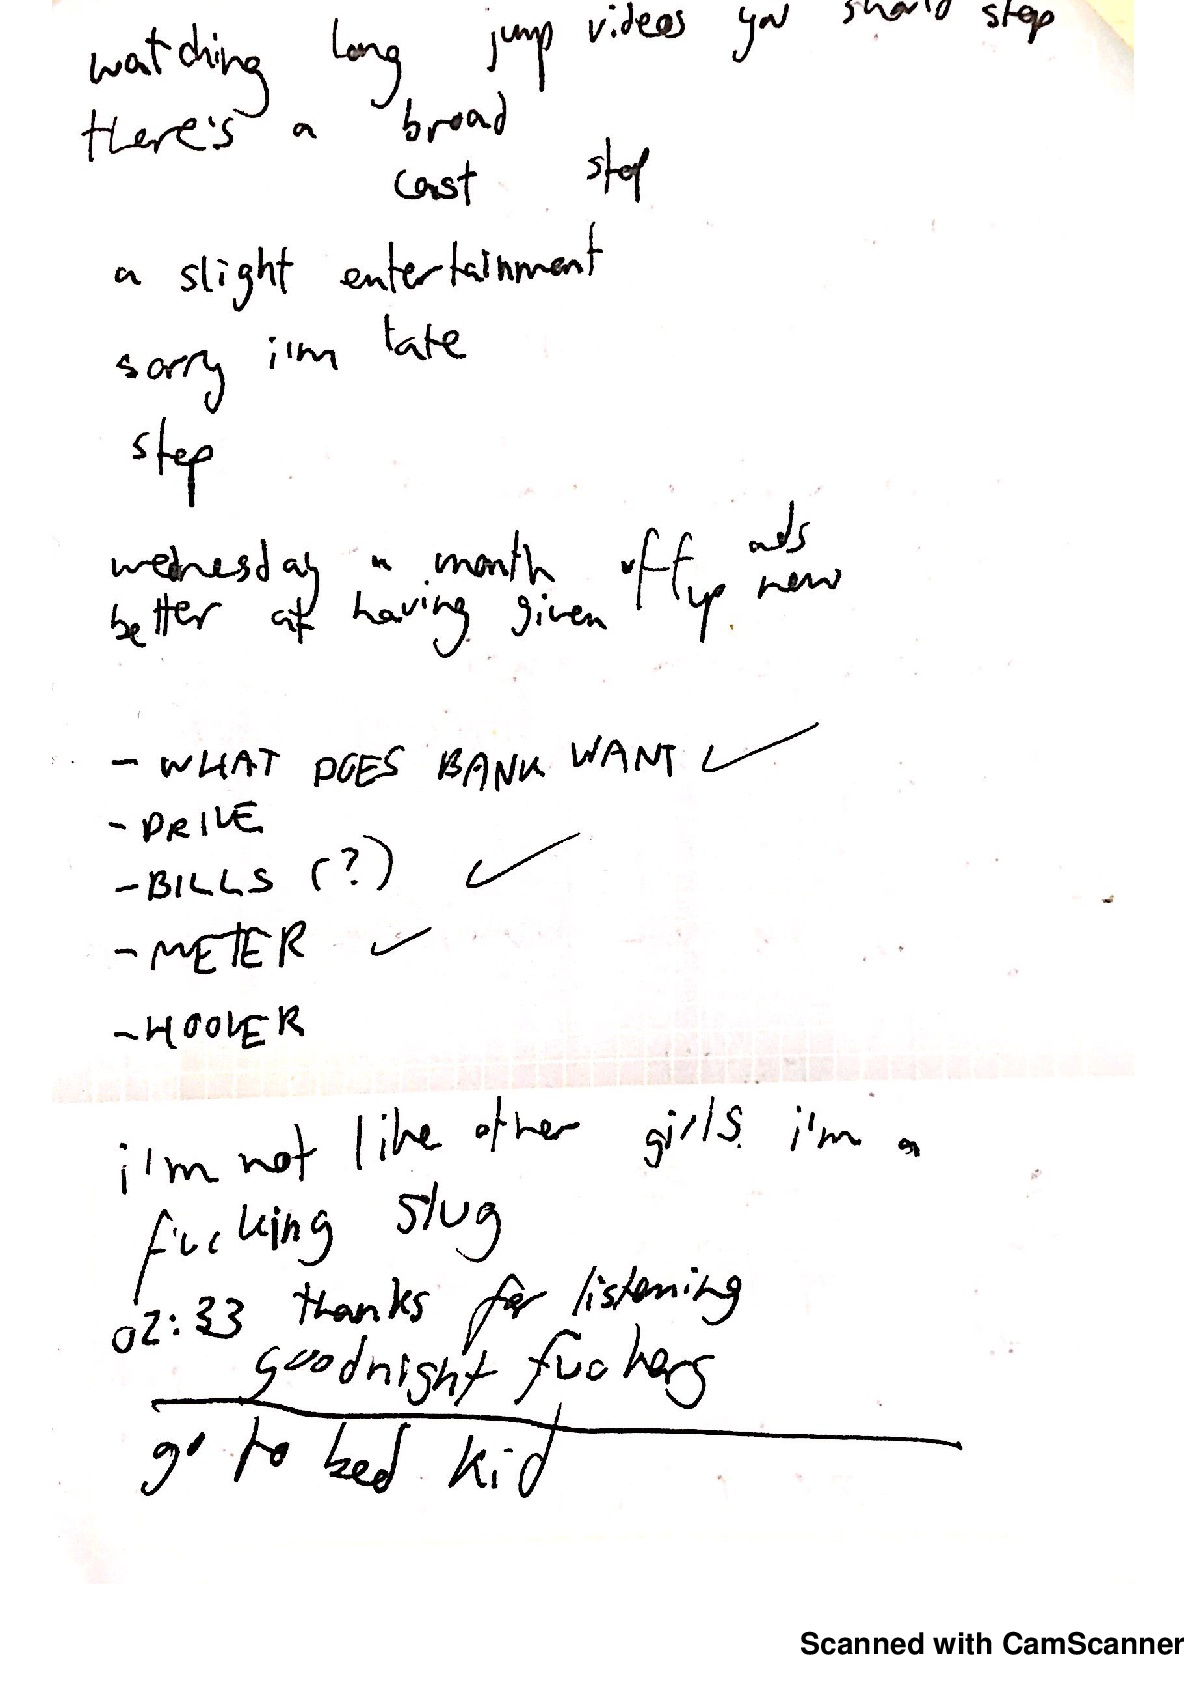 watching long jump videos you should stop
there's a broad
cast stop
a slight entertainment
sorry i'm late
step
wednesday a month off ads
better at having given up new
- WHAT DOES BANK WANT ✓
- DRIVE
- BILLS (?) ✓
- METER ✓
- HOOVER
i'm not like other girls i'm a
fucking slug
02:33 thanks for listening
goodnight fuckers
go to bed kid
Scanned with CamScanner